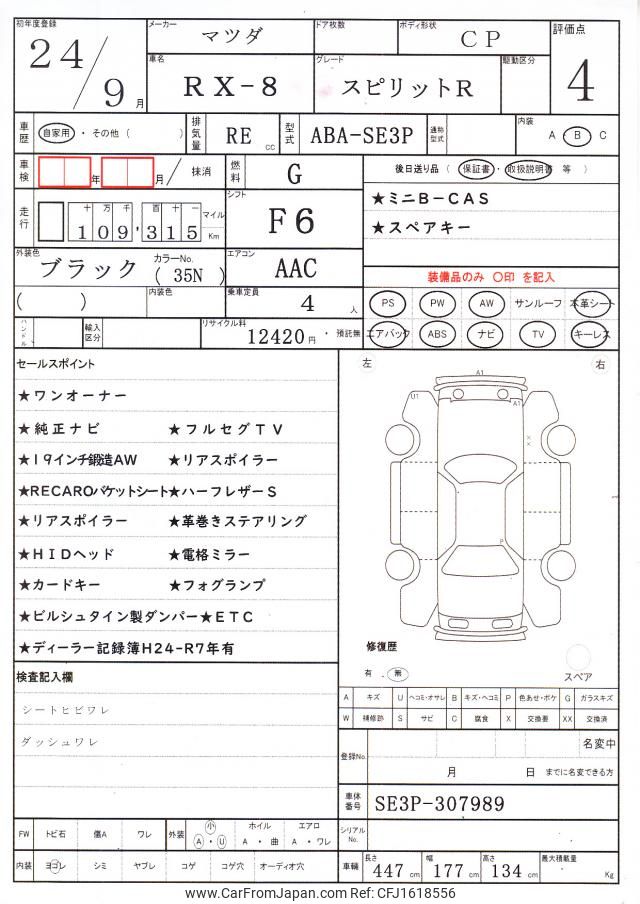 初年度登録 メーカー マツダ ドア枚数 ボディ形状 CP 評価点
24/9月 車名 RX-8 グレード スピリットR 駆動区分 4
車歴 自家用・その他( ) 排気量 RE cc 型式 ABA-SE3P 通称型式 内装 A B C
車検 年 月/ 抹消 燃料 G 後日送り品(保証書・取扱説明書 等)
走行 十万千百十一 109,315 マイル Km シフト F6 ★ミニB-CAS
★スペアキー
外装色 ブラック カラーNo. (35N) エアコン AAC 装備品のみ ○印 を記入
( ) 内装色 乗車定員 4人 PS PW AW サンルーフ 本革シート
ハンドル 輸入区分 リサイクル料 12420円・預託無 エアバック ABS ナビ TV キーレス
セールスポイント 左 右
★ワンオーナー
★純正ナビ ★フルセグTV
★19インチ鍛造AW ★リアスポイラー
★RECAROバケットシート★ハーフレザーS
★リアスポイラー ★革巻きステアリング
★HIDヘッド ★電格ミラー
★カードキー ★フォグランプ
★ビルシュタイン製ダンパー★ETC
★ディーラー記録簿H24-R7年有
A1
U1 A1
××
P
修復歴
有.無 スペア
検査記入欄
シートヒビワレ
ダッシュワレ
A キズ U ヘコミ・オサレ B キズ・ヘコミ P 色あせ・ボケ G ガラスキズ
W 補修跡 S サビ C 腐食 X 交換要 XX 交換済
登録No. 名変中
月 日 までに名変できる方
車体番号 SE3P-307989
シリアルNo.
FW トビ石 傷A ワレ 外装 小 A・U ホイル A・曲 エアロ A・ワレ
内装 ヨゴレ シミ ヤブレ コゲ コゲ穴 オーディオ穴 車輌 長さ 447cm 幅 177cm 高さ 134cm 最大積載量 Kg
www.CarFromJapan.com Ref: CFJ1618556